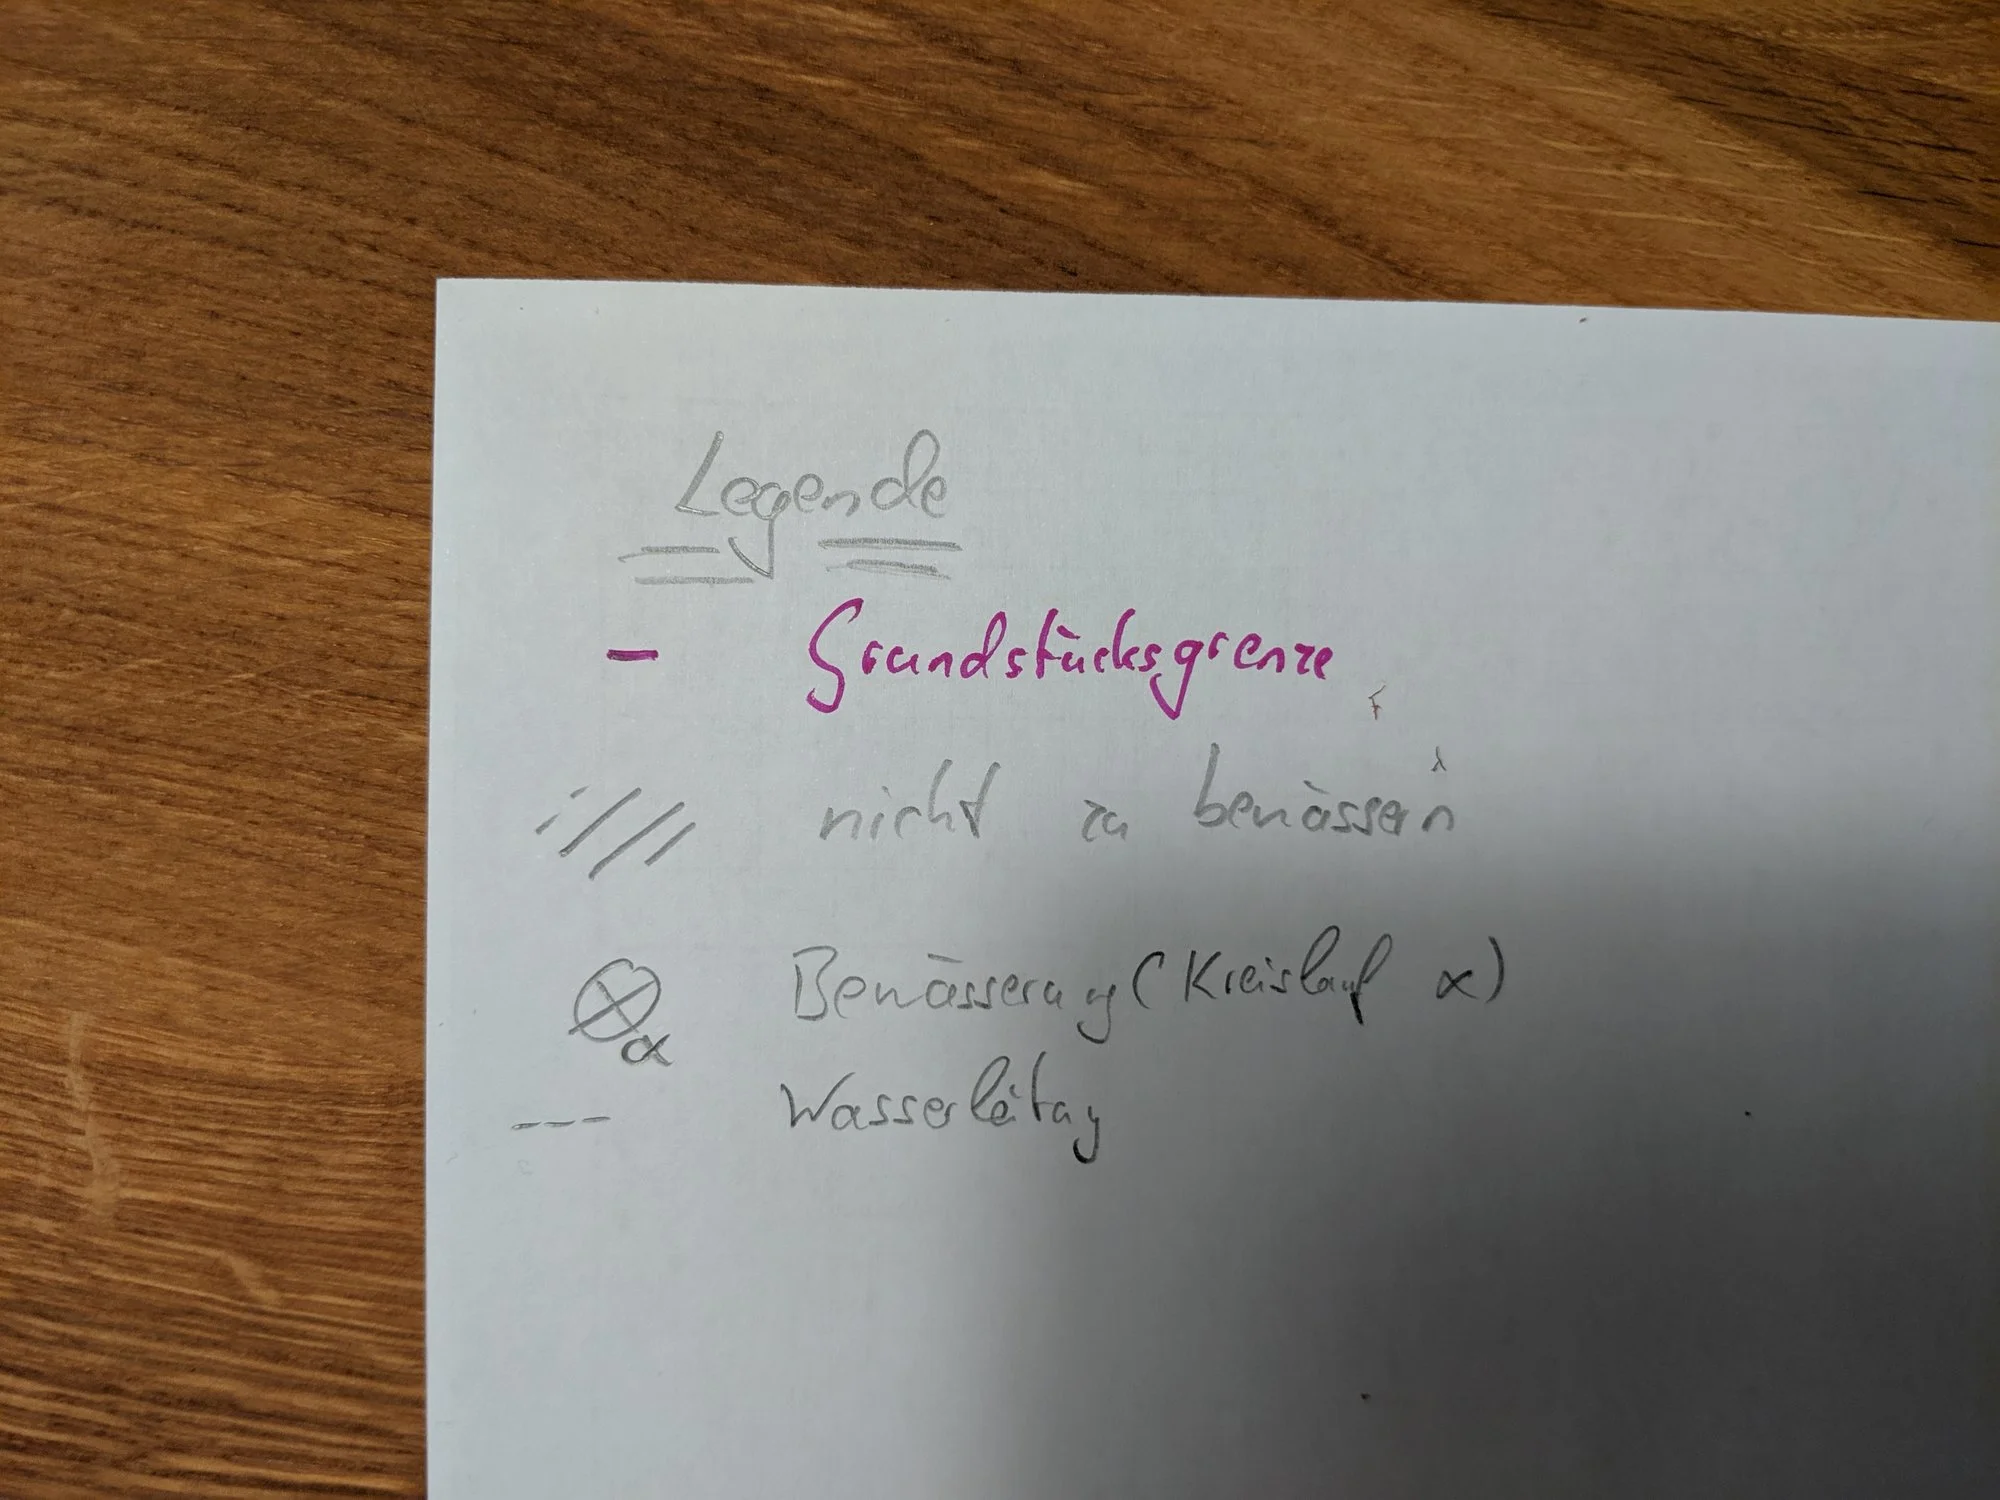 Legende
- Grundstücksgrenze
nicht zu bewässern
α Bewässerung (Kreislauf α)
--- Wasserleitung